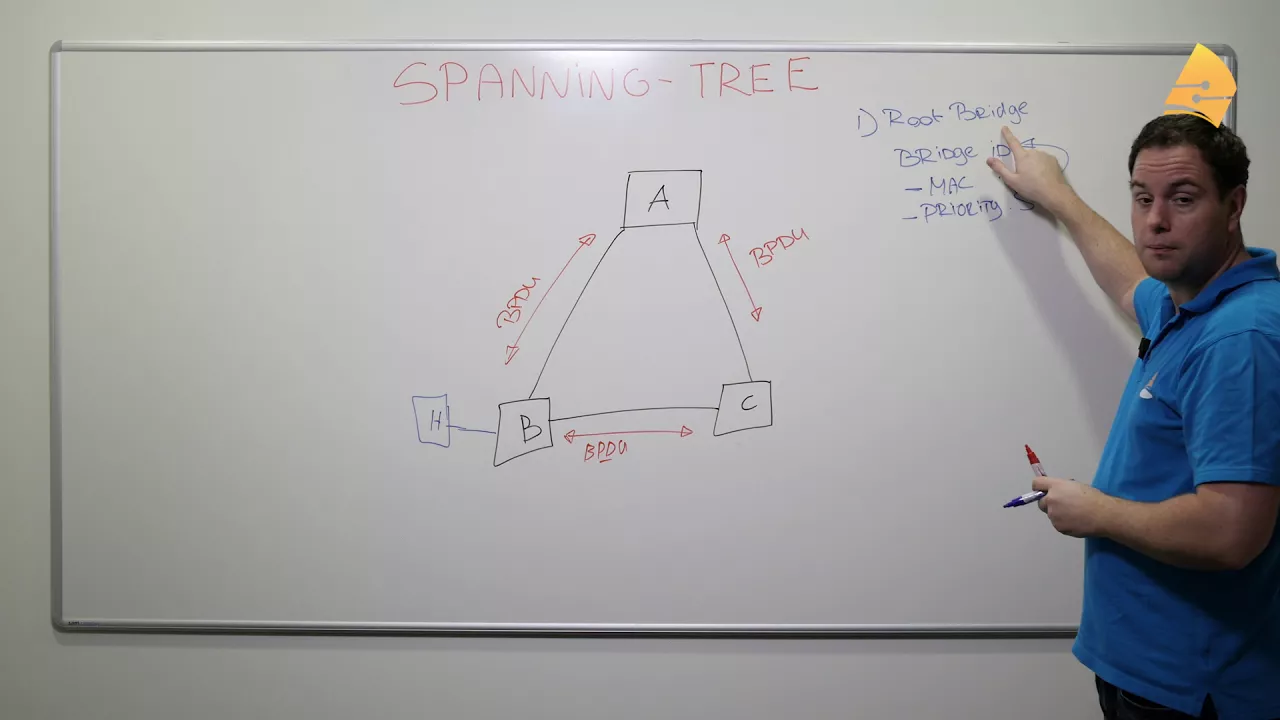 SPANNING-TREE
1) Root Bridge
BRidge iD
- MAC
- PRIORITY
A
BPDU
BPDU
H
B
C
BPDU